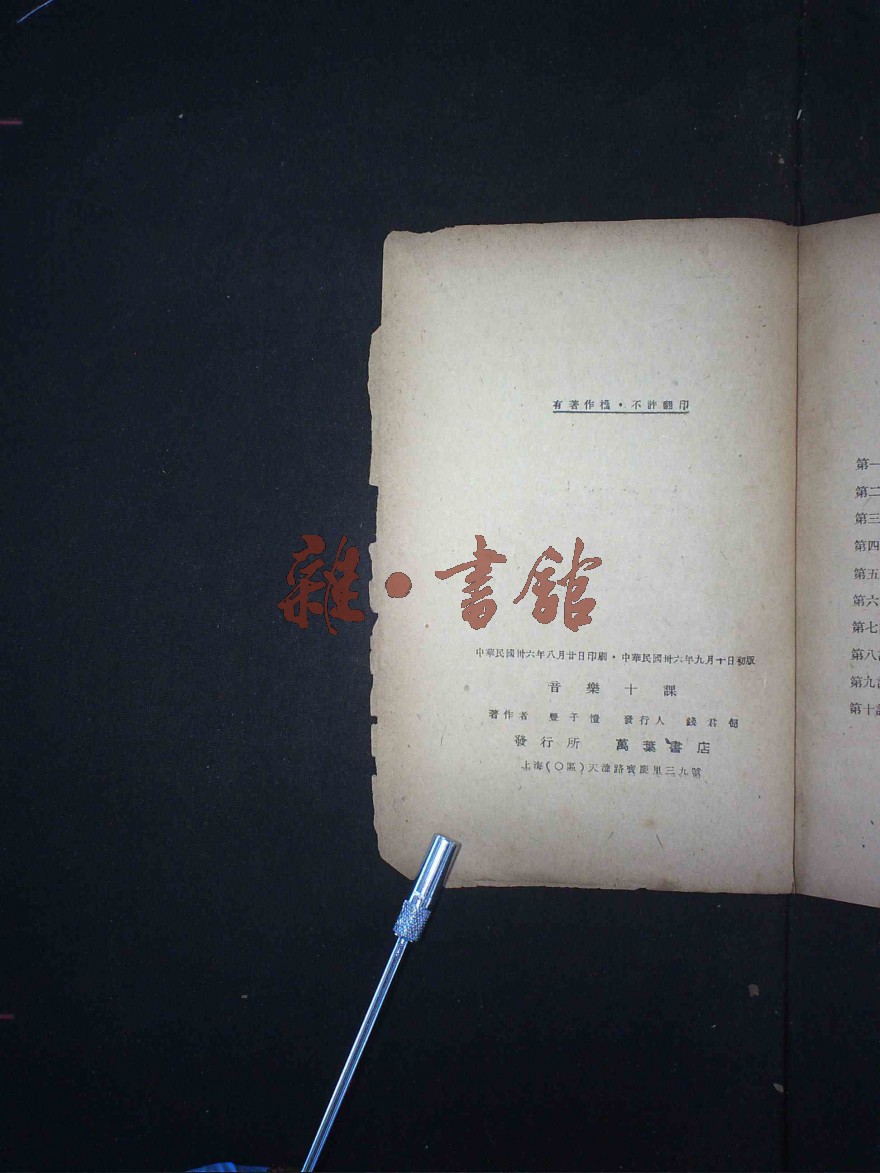 有著作權・不許翻印
雜・書館
中華民國卅六年八月廿日印刷・中華民國卅六年九月十日初版
音樂十課
著作者 豐子愷 發行人 錢君匋
發行所 萬葉書店
上海(〇區)天潼路寶慶里三九號
第一
第二
第三
第四
第五
第六
第七
第八
第九
第十